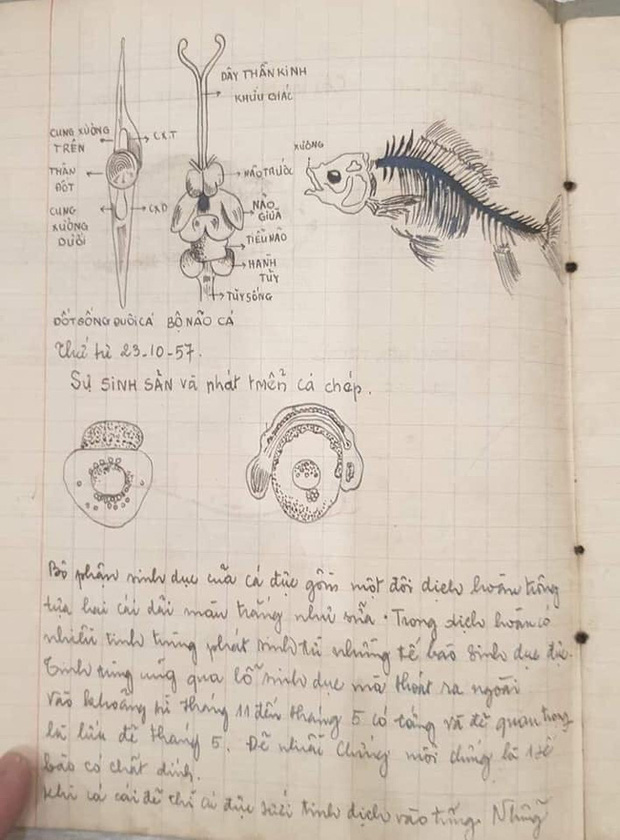 DÂY THẦN KINH
KHỨU GIÁC
CUNG XƯƠNG
TRÊN
CX.T
THÂN
ĐỐT
CUNG
XƯƠNG
DƯỚI
CXD
NÃO TRƯỚC
NÃO
GIỮA
TIỂU NÃO
HÀNH
TỦY
TỦY SỐNG
XƯƠNG
ĐỐT SỐNG ĐUÔI CÁ BỘ NÃO CÁ
Thứ tư 23-10-57.
Sự SINH SẢN và phát triển cá chép.
Bộ phận sinh dục của cá đực gồm một đôi dịch hoàn trông
tựa hai cái dải màu trắng như sữa. Trong dịch hoàn có
nhiều tinh trùng phát sinh từ những tế bào sinh dục đực.
Tinh trùng qua lỗ sinh dục mà thoát ra ngoài
vào khoảng từ tháng 11 đến tháng 5 có và đẻ quan trọng
là lứa đẻ tháng 5. Đẻ nhiều chứng mỗi chứng là 1 tế
bào có chất dính.
Khi cá cái đẻ thì cá đực tưới tinh dịch vào trứng. Những